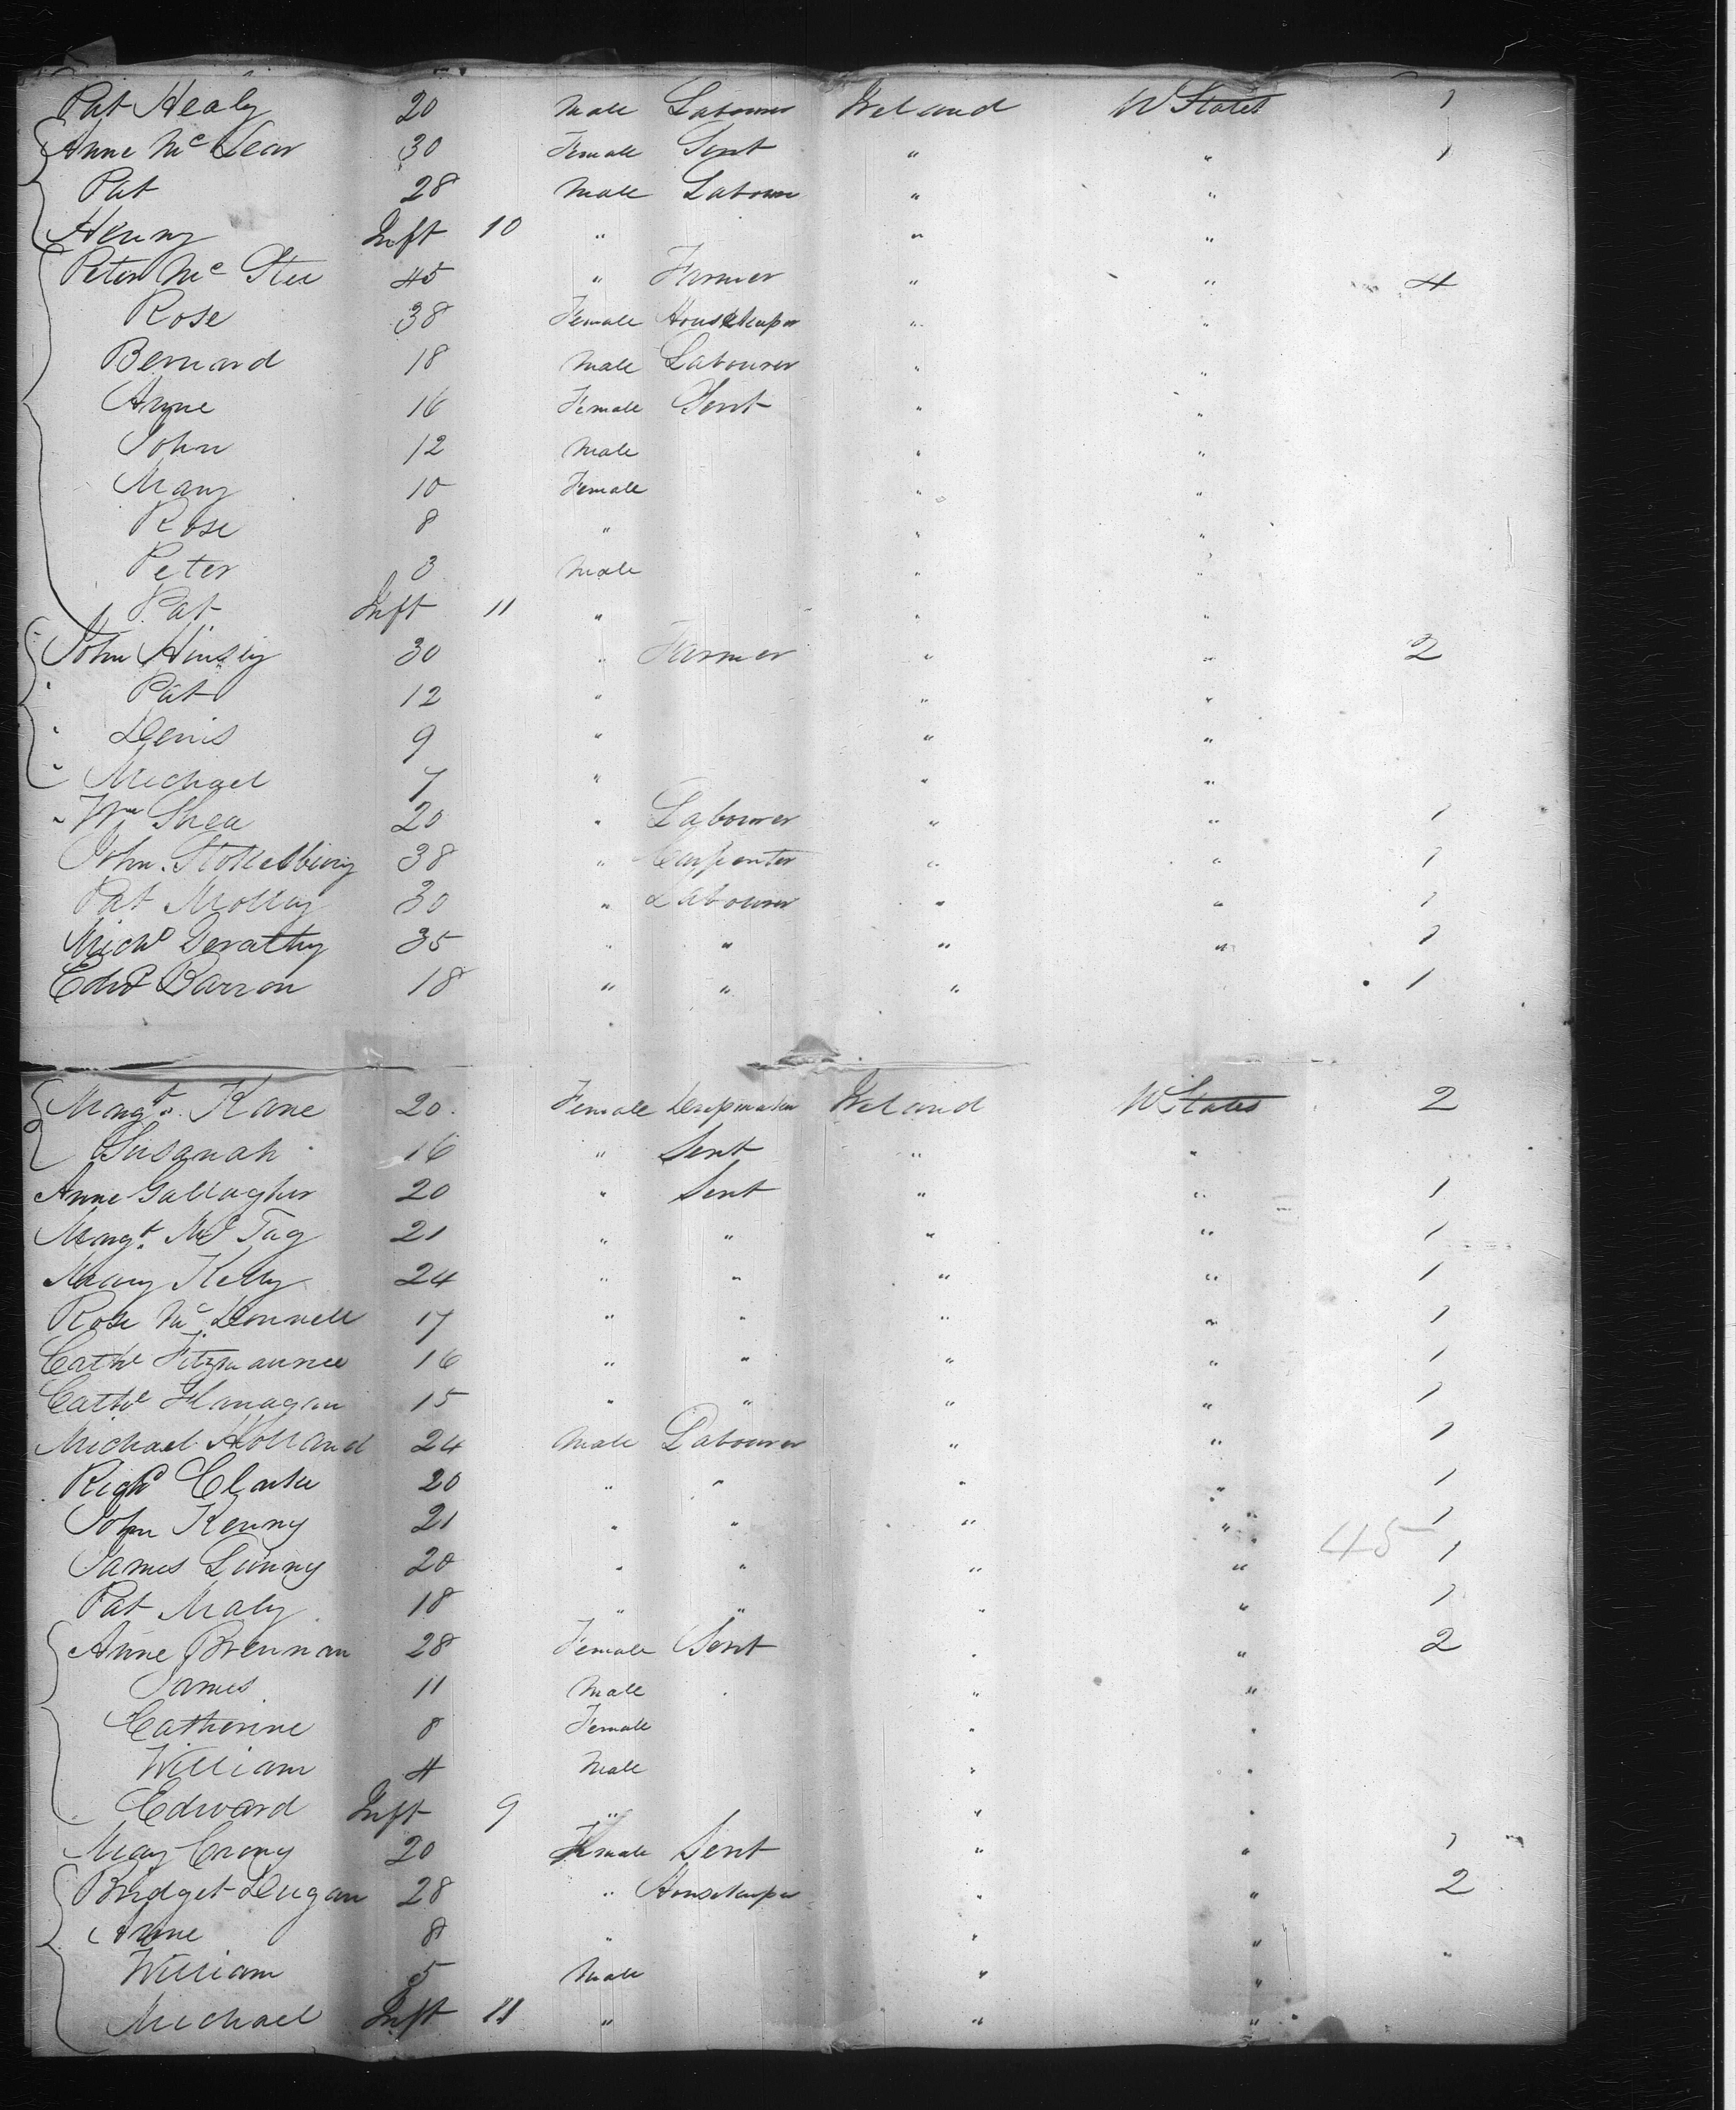 Pat Healy 20 Male Labourer Ireland U States 1
Anne Mc 30 Female Sert " " 1
Pat 28 Male Labourer " "
Henry Inft 10 " " "
Peter Mc 45 " Farmer " " 4
Rose 38 Female Housekeeper " "
Bernard 18 Male Labourer " "
Anne 16 Female Sert " "
John 12 Male " "
Mary 10 Female " "
Rose 8 " " "
Peter 3 Male " "
Pat Inft 11 " " "
John 30 " Farmer " " 2
" Pat 12 " " "
" Denis 9 " " "
" Michael 7 " " "
" Wm Shea 20 " Labourer " " 1
John 38 " Carpenter " " 1
Pat Molloy 30 " Labourer " " 1
Michl Gerathy 35 " " " " 1
Edwd Barron 18 " " " " 1
Margt. Kane 20 Female Ireland U States 2
Susanah 16 " Sert " "
Anne Gallagher 20 " Sert " " 1
Margt. 21 " " " " 1
Mary Kelly 24 " " " " 1
Rose Mc Donnell 17 " " " " 1
Cathe Fitzmaurice 16 " " " " 1
Cathe Flanagan 15 " " " " 1
Michael Holland 24 Male Labourer " " 1
Richd Clarke 20 " " " " 1
John Kenny 21 " " " " 1
James Lunny 20 " " " " 45 1
Pat Maly 18 " " " " 1
Anne Brennan 28 Female Sert " " 2
James 11 Male " "
Catherine 8 Female " "
William 4 Male " "
Edward Inft 9 " " "
May 20 Female Sert " " 1
Bridget Dugan 28 " Housekeeper " " 2
Anne 8 " " "
William 5 Male " "
Michael Inft 11 " " "